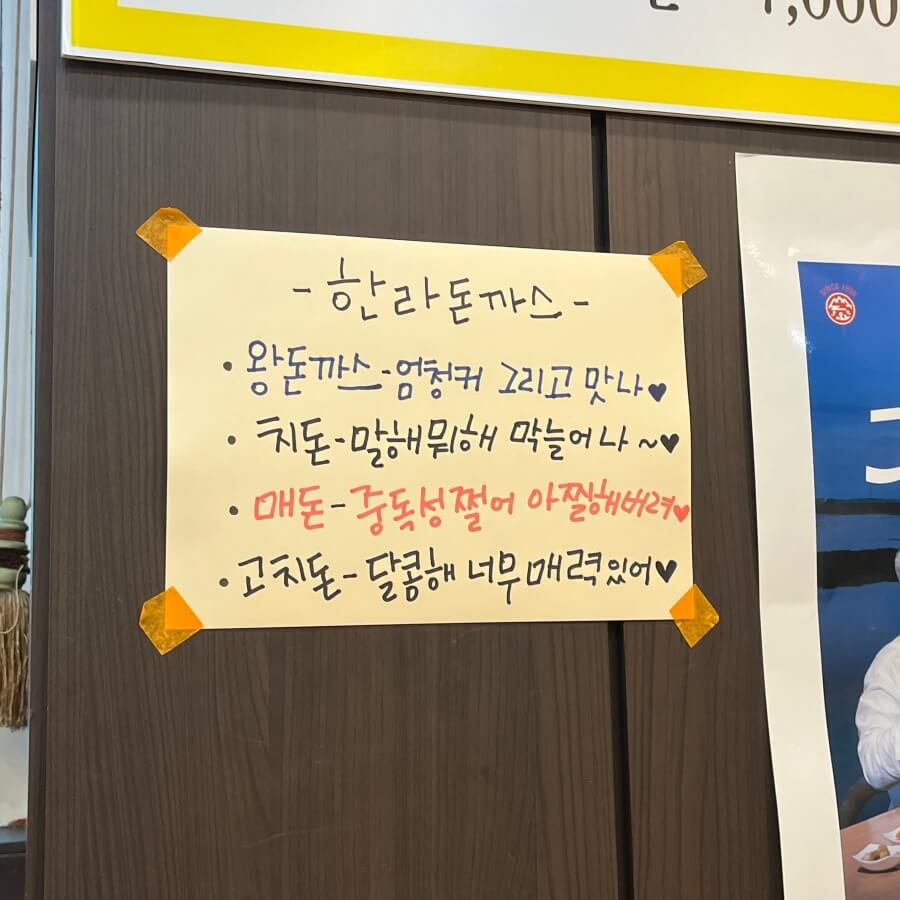 ,000
SINCE 1998
-한라돈까스-
• 왕돈까스-엄청커 그리고 맛나♥
• 치돈-말해뭐해 막늘어나~♥
• 매돈-중독성쩔어 아찔해버려♥
• 고치돈-달콤해 너무매력있어♥